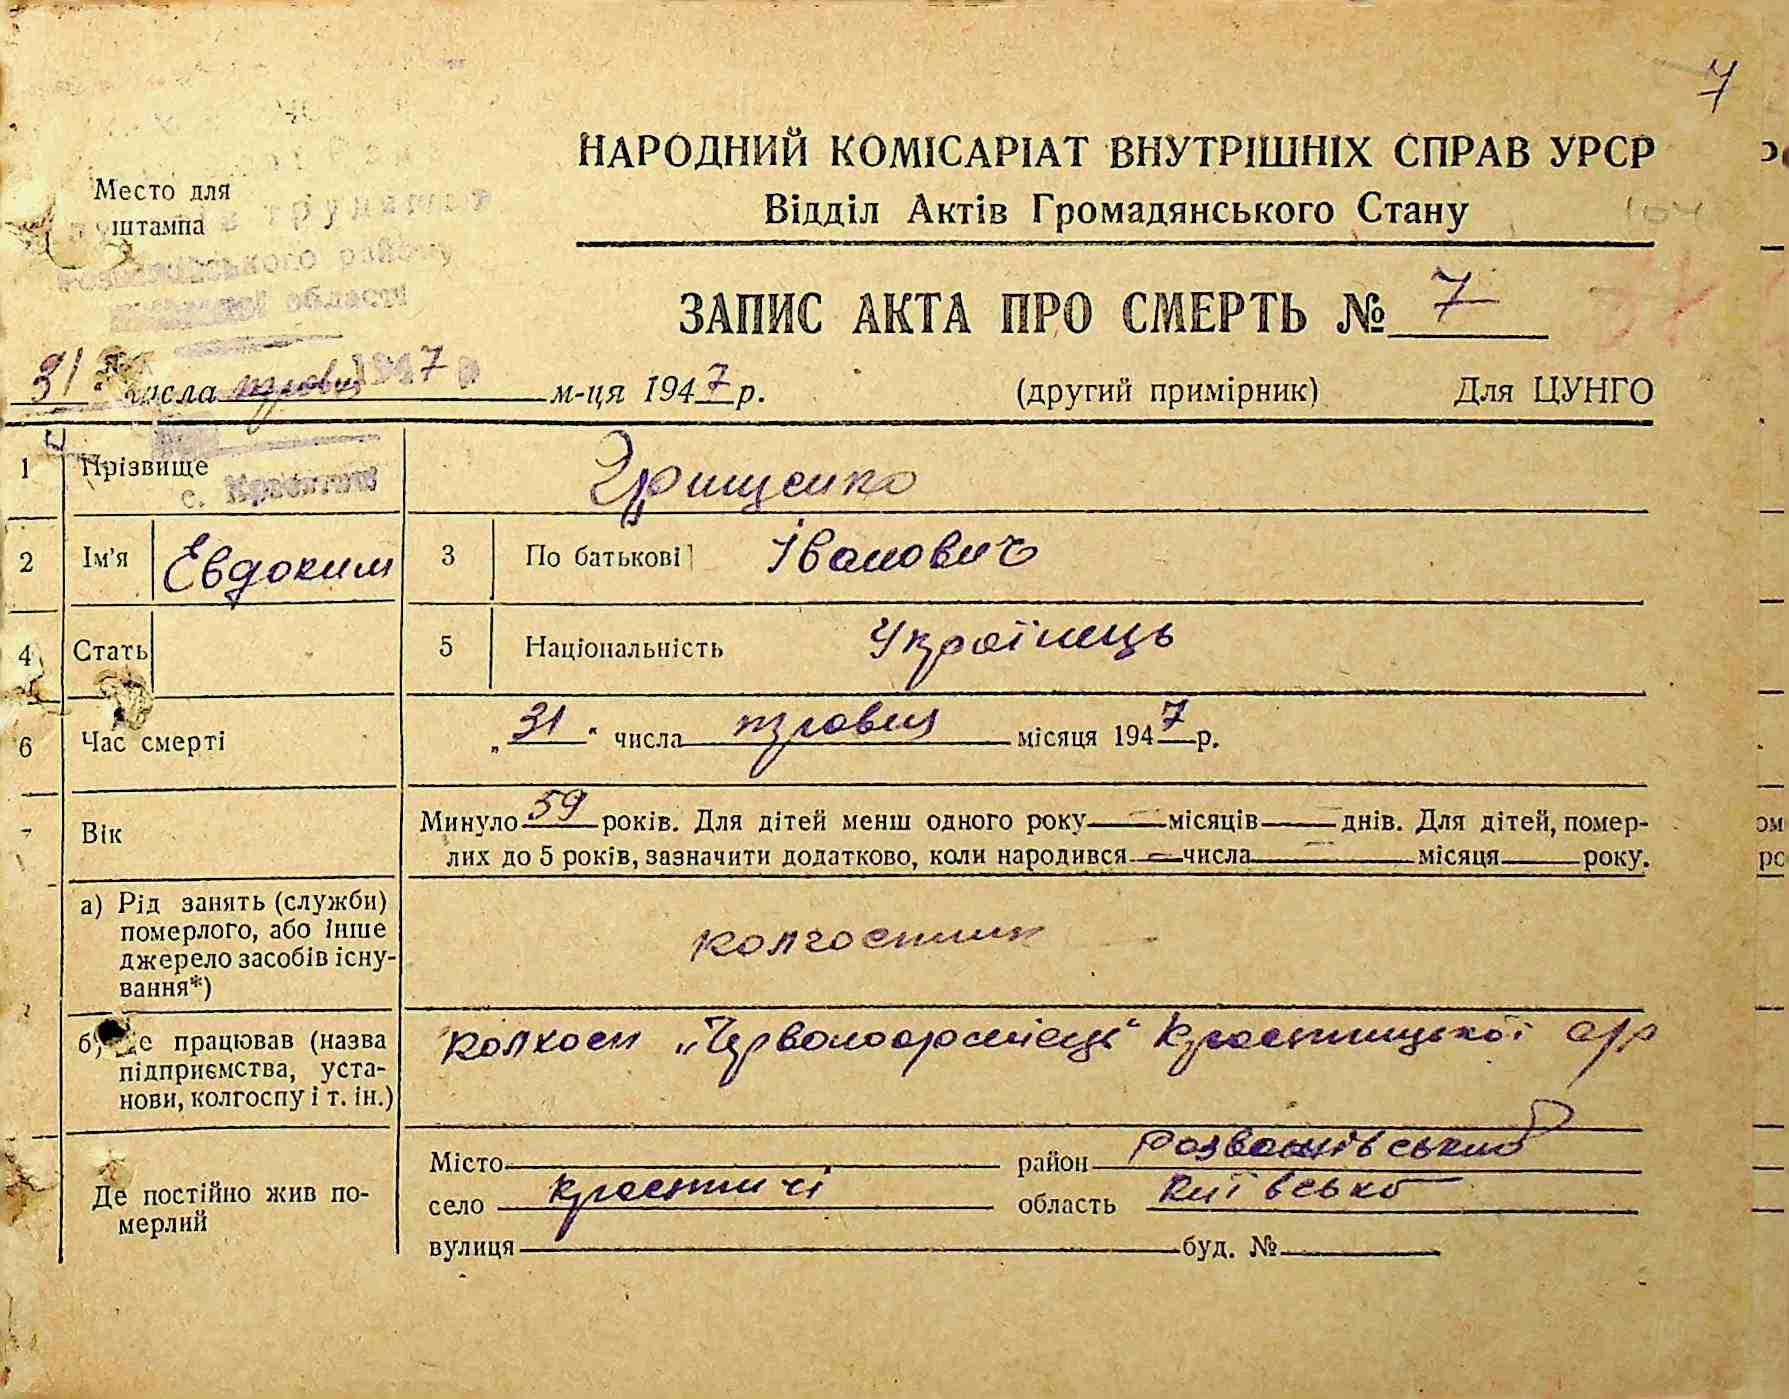 7
НАРОДНИЙ КОМІСАРІАТ ВНУТРІШНІХ СПРАВ УРСР
Відділ Актів Громадянського Стану
104
Место для
штампа
району
області
ЗАПИС АКТА ПРО СМЕРТЬ № 7
31 числа травня м-ця 1947 р.
(другий примірник) Для ЦУНГО
1 Прізвище Грищенко
с.
2 Ім'я Евдоким 3 По батькові Іванович
4 Стать 5 Національність Українець
6 Час смерті „31" числа травня місяця 1947 р.
7 Вік Минуло 59 років. Для дітей менш одного року — місяців — днів. Для дітей, помер-
лих до 5 років, зазначити додатково, коли народився — числа — місяця року.
а) Рід занять (служби)
померлого, або інше
джерело засобів існу-
вання*)
колгоспник
б) Де працював (назва
підприємства, уста-
нови, колгоспу і т. ін.)
колхосп „Червоноармієць" Красятицької с/р
Де постійно жив по-
мерлий
Місто район Розважівський
село Красятичі область Київська
вулиця буд. №